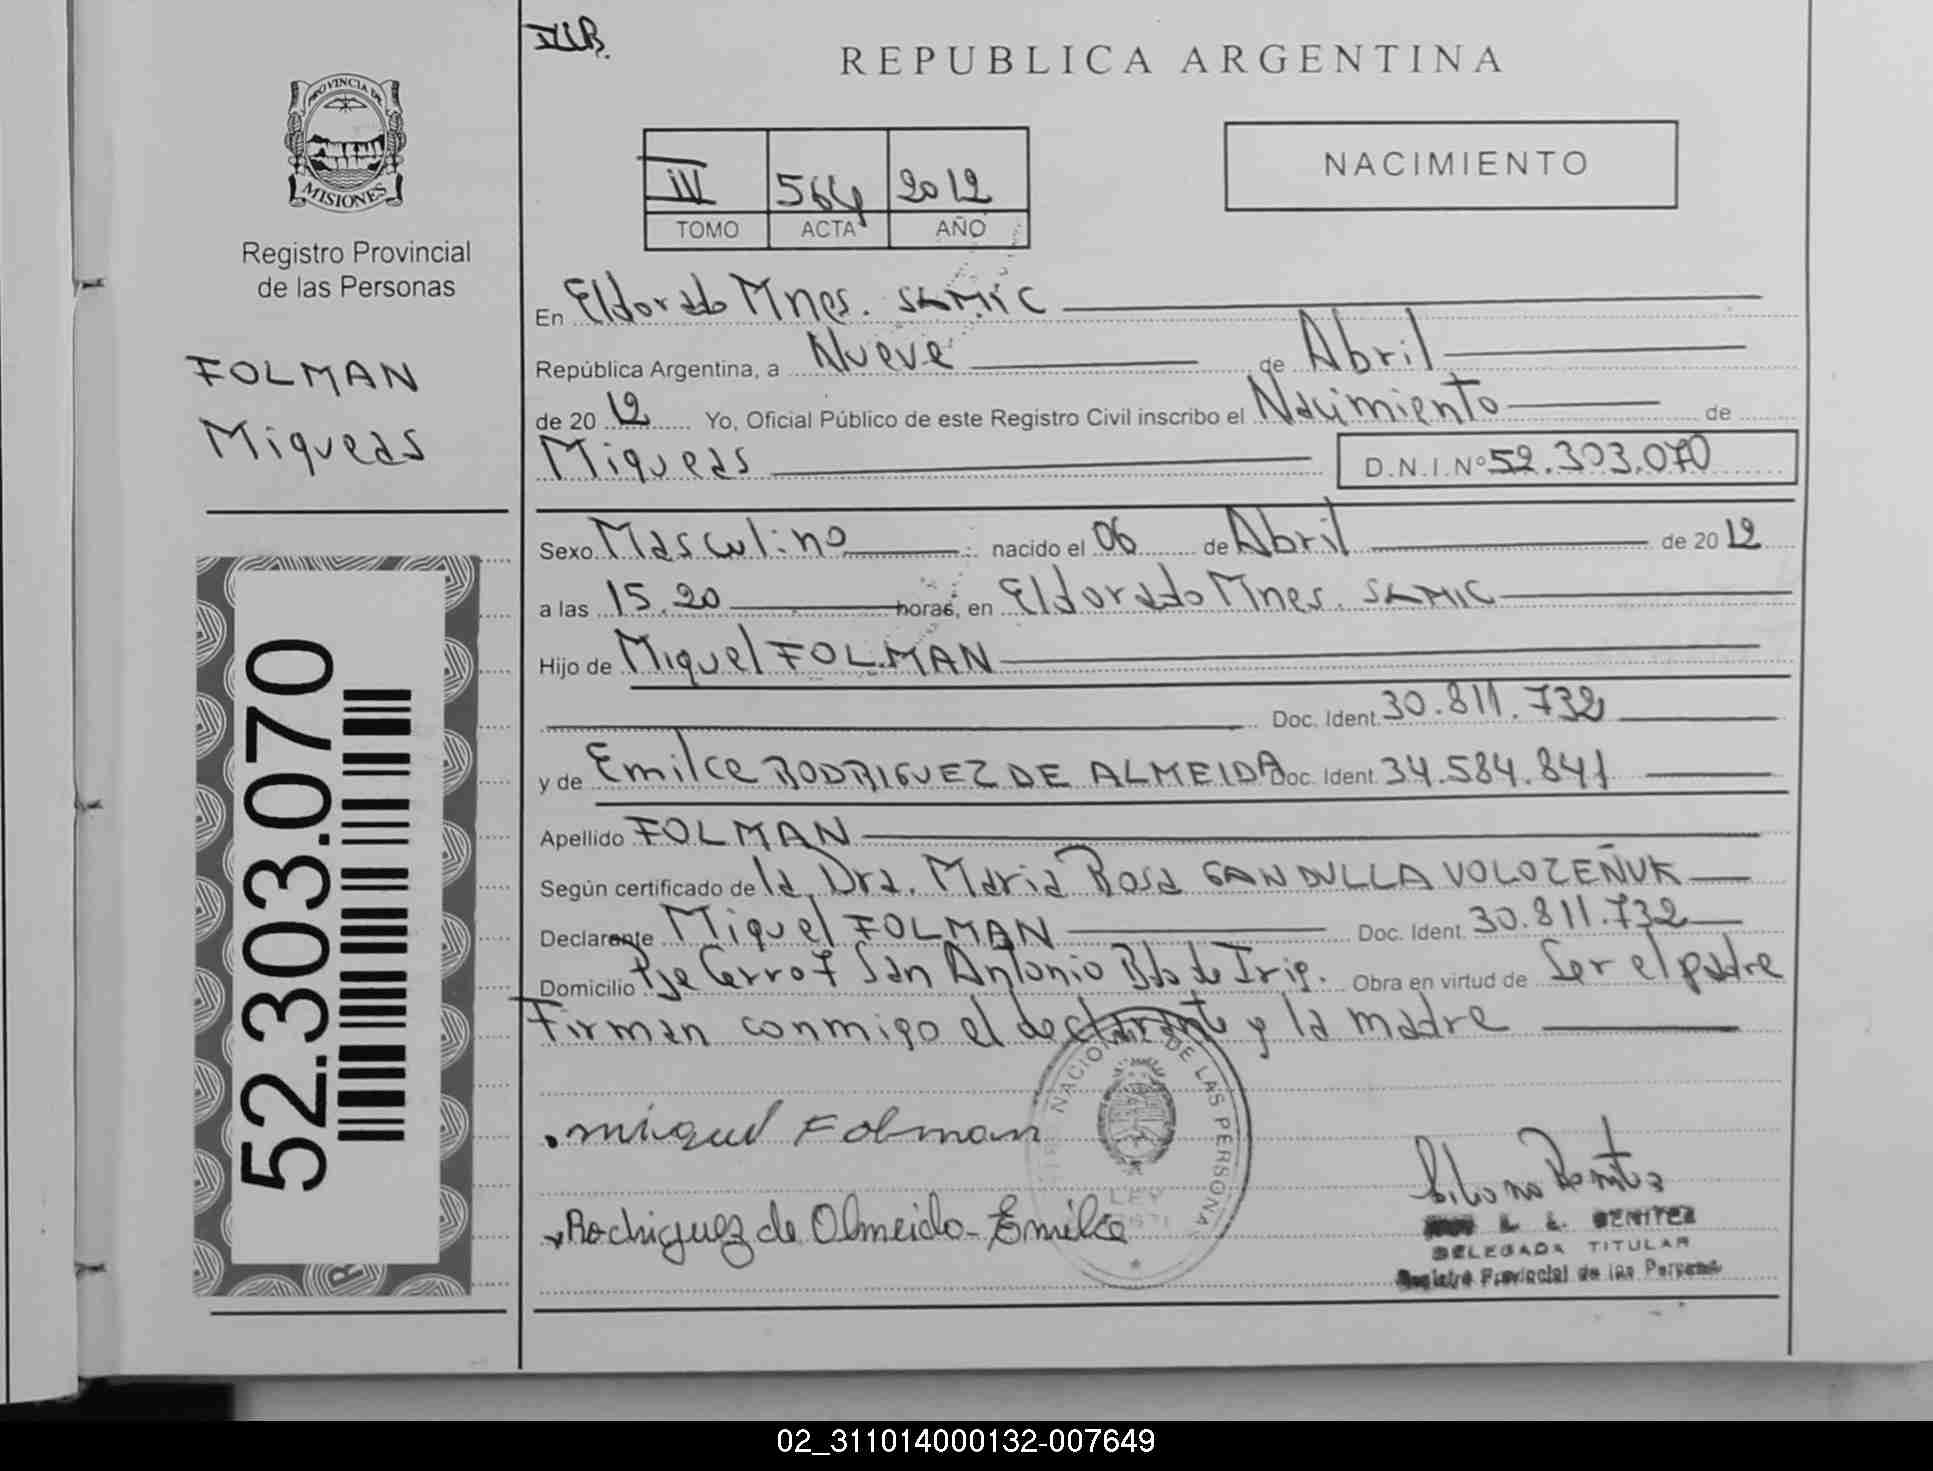 REPUBLICA ARGENTINA
PROVINCIA DE
MISIONES
Registro Provincial
de las Personas
FOLMAN
Miqueas
52.303.070
NACIMIENTO
564 2012
TOMO ACTA AÑO
En Eldorado Mnes. SAMIC
República Argentina, a Nueve de Abril
de 2012 Yo, Oficial Público de este Registro Civil inscribo el Nacimiento de
Miqueas D.N.I.Nº 52.303.070
Sexo Masculino nacido el 06 de Abril de 2012
a las 15.20 horas, en Eldorado Mnes. SAMIC
Hijo de Miguel FOLMAN
Doc. Ident. 30.811.732
y de Emilce RODRIGUEZ DE ALMEIDA Doc. Ident. 34.584.841
Apellido FOLMAN
Según certificado de la Dra. Maria Rosa GANDULLA VOLOZEÑUK
Declarante Miguel FOLMAN Doc. Ident. 30.811.732
Domicilio Pje Cerro 7 San Antonio Bdo de Irig. Obra en virtud de Ser el padre
Firman conmigo el declarante y la madre
NACIO DE LAS PERSONA
LEY
miguel Folman
Rodriguez de Almeida - Emilce
BENITEZ
DELEGADA TITULAR
Registro Provincial de las Personas
02_311014000132-007649